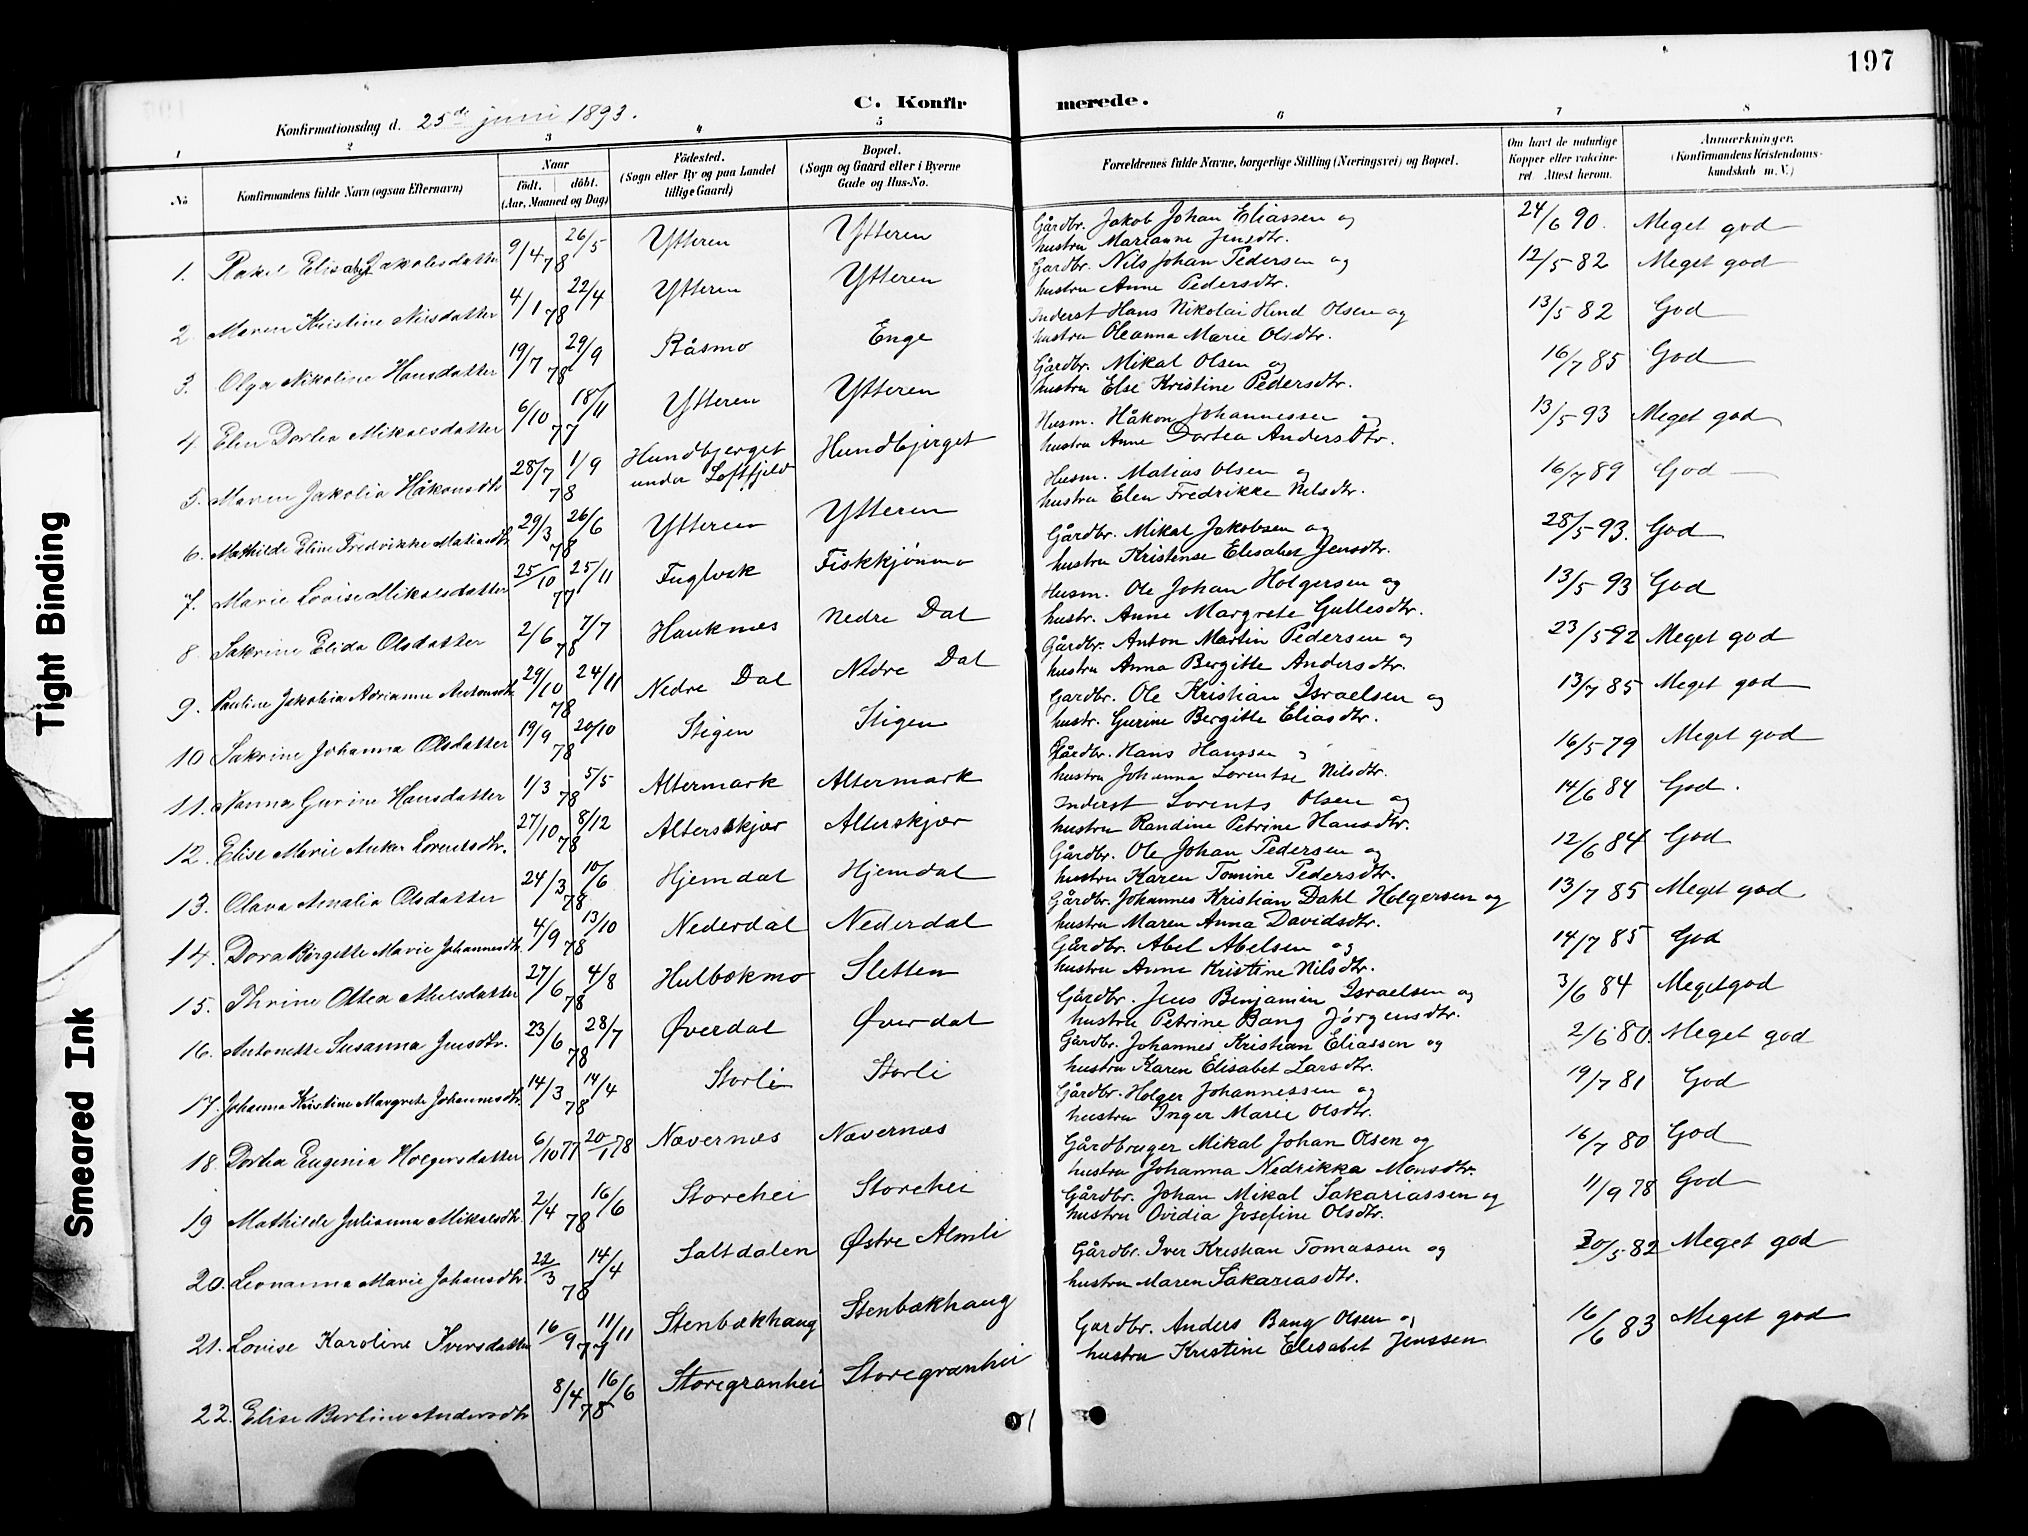 197
C. Konfirmerede.
Konfirmationsdag d. 25de juni 1893.
1 2 3 4 5 6 7 8
No Konfirmandens fulde Navn (ogsaa Efternavn) Naar födt. döbt. (Aar, Maaned og Dag) Födested. (Sogn eller By og paa Landet tillige Gaard) Bopæl. (Sogn og Gaard eller i Byerne Gade og Hus-No. Forældrenes fulde Navne, borgerlige Stilling (Næringsvei) og Bopæl. Om havt de naturlige Kopper eller vaccineret Attest herom. Anmærkninger. (Konfirmandens Kristendomskundskab m. V.)
1. Rakel Elisabet Jakobsdatter 9/4 78 26/5 Ytteren Ytteren Gårdbr. Jakob Johan Eliassen og 24/6 90. Meget god
hustru Marianne Jensdtr.
2. Maren Kristine Nilsdatter 4/1 78 22/4 Ytteren Ytteren Gårdbr. Nils Johan Pedersen og 12/5 82 Meget god
hustru Anne Pedersdtr.
3. Olga Nikoline Hansdatter 19/7 78 29/9 Båsmo Enge Inderst Hans Nikolai Hind Olsen og 13/5 82 God
hustru Oleanna Marie Olsdtr.
4 Elen Dortea Mikalsdatter 6/10 77 18/11 Ytteren Ytteren Gårdbr. Mikal Olsen og 16/7 85 God
hustru Else Kristine Pedersdtr.
5. Maren Jakobia Håkonsdtr 28/7 78 1/9 Hundbjerget under Loftfjeld Hundbjerget Husm. Håkon Johannessen og 13/5 93 Meget god
hustru Anne Dortea Andersdtr.
6. Mathilde Eline Fredrikke Matiasdtr 29/3 78 26/6 Ytteren Ytteren Husm. Matias Olsen og 16/7 89 God
hustru Elen Fredrikke Nilsdtr.
7. Marie Lovise Mikalsdatter 25/10 77 25/11 Fuglvik Fiskkjønmo Gårdbr. Mikal Jakobsen og 28/5 93. God
hustru Kristense Elisabet Jensdtr.
8 Sakrine Elida Olsdatter 2/6 78 7/7 Hauknes Nedre Dal Husm. Ole Johan Holgersen og 13/5 93 God
hustr. Anne Margrete Gullesdtr.
9. Pauline Jakobia Adrianna Antonsdtr 29/10 78 24/11 Nedre Dal Nedre Dal Gårdbr. Anton Martin Pedersen og 23/5 92 Meget god
hustru Anna Bergitte Andersdtr.
10 Sakrine Johanna Olsdatter 19/9 78 20/10 Stigen Stigen Gårdbr. Ole Kristian Israelsen og 13/7 85 Meget god
hustr. Gurine Bergitte Eliasdtr.
11. Nanna Gurine Hansdatter 1/3 78 5/5 Altermark Altermark Gårdbr. Hans Hanssen og 16/5 79 Meget god
hustru Johanna Lorentse Nilsdtr.
12. Elise Marie Anker Lorentsdtr. 27/10 78 8/12 Alterskjær Alterskjær Inderst Lorents Olsen og 14/6 84 God.
hustru Randine Petrine Hansdtr.
13. Olava Amalia Olsdatter 24/3 78 10/6 Hjemdal Hjemdal Gårdbr. Ole Johan Pedersen og 12/6 84 God
hustru Karen Tomine Pedersdtr.
14. Dora Bergitte Marie Johannesdtr. 4/9 78 13/10 Nederdal Nederdal Gårdbr. Johannes Kristian Dahl Holgersen og 13/7 85 Meget god
hustru Maren Anna Davidsdtr.
15. Thrine Ottea Abelsdatter 27/6 78 4/8 Hulbækmo Sletten Gårdbr. Abel Abelsen og 14/7 85 God
hustru Anne Kristine Nilsdtr.
16. Antonette Susanna Jensdtr. 23/6 78 28/7 Øverdal Øverdal Gårdbr. Jens Benjamin Israelsen og 3/6 84 Meget god
hustru Petrine Bang Jörgensdtr.
17. Johanna Kristine Margrete Johannesdtr. 14/3 78 14/4 Storli Storli Gårdbr. Johannes Kristian Eliassen og 2/6 80. Meget god
hustru Karen Elisabet Larsdtr.
18. Dortea Eugenia Holgersdatter 6/10 77 20/1 78 Nævernæs Nævernæs Gårdbr. Holger Johannessen og 19/7 81 God
hustru Inger Marie Olsdtr.
19 Mathilde Julianna Mikalsdtr. 2/4 78 16/6 Storehei Storehei Gårdbruger Mikal Johan Olsen og 16/7 80 God
hustru Johanna Nedrikka Monsdtr.
20. Leonanna Marie Johansdtr. 22/3 78 14/4 Saltdalen Østre Almli Gårdbr. Johan Mikal Sakariassen og 11/9 78 God
hustru Ovidia Josefine Olsdtr.
21. Lovise Karoline Iversdatter 16/9 77 11/11 Stenbækhaug Stenbækhaug Gårdbr. Iver Kristian Tomassen og 20/5 82 Meget god
hustru Maren Sakariasdtr.
22. Elise Bertine Andersdtr 8/4 78 16/6 Storegranhei Storegranhei Gardbr. Anders Bang Olsen og 16/6 83 Meget god
hustru Kristine Elesabet Jenssen
Tight Binding
Smeared Ink